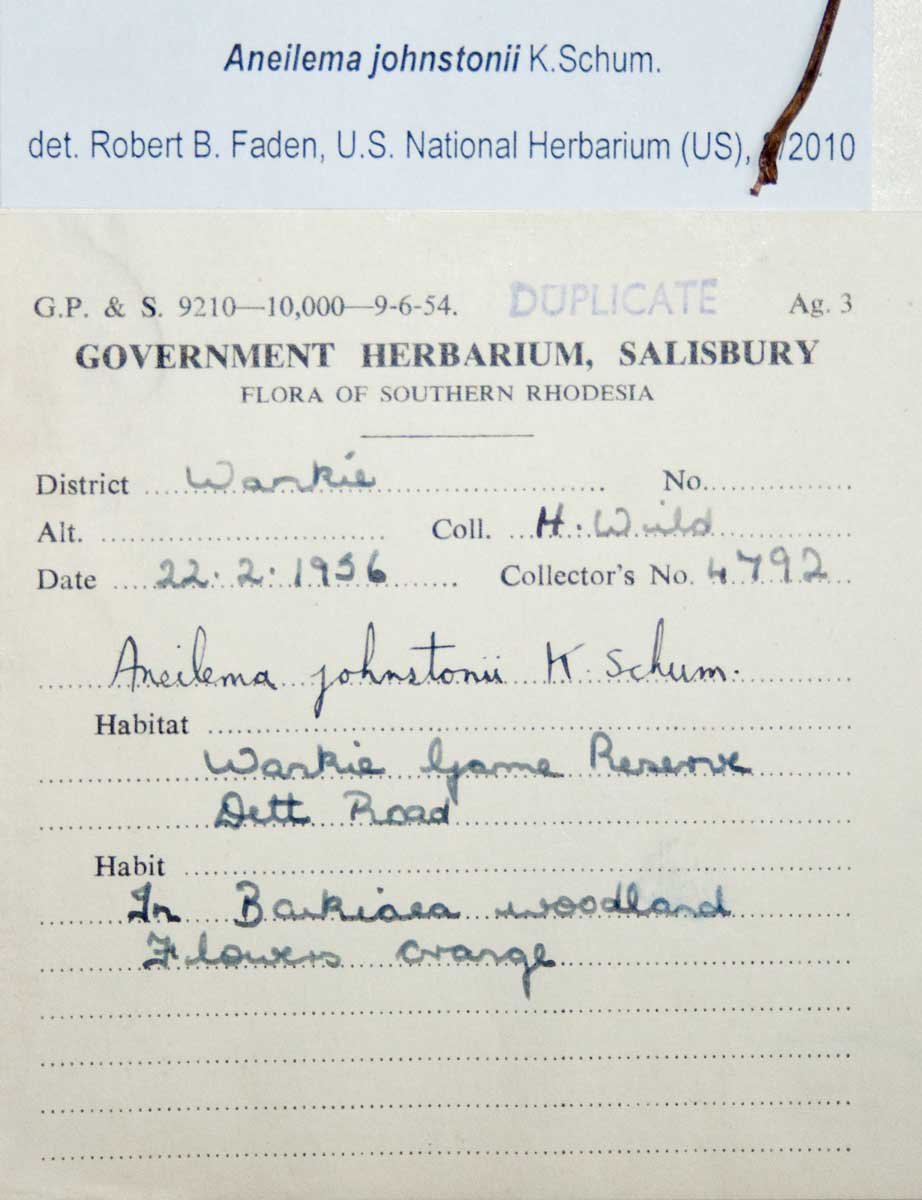 Aneilema johnstonii K.Schum.
det. Robert B. Faden, U.S. National Herbarium (US), /2010
G.P. & S. 9210—10,000—9-6-54. DUPLICATE Ag. 3
GOVERNMENT HERBARIUM, SALISBURY
FLORA OF SOUTHERN RHODESIA
District Wankie No.
Alt. Coll. H. Wild
Date 22.2.1956 Collector's No. 4792
Aneilema johnstonii K. Schum.
Habitat
Wankie Game Reserve
Dett Road
Habit
In Baikiaea woodland
Flowers orange